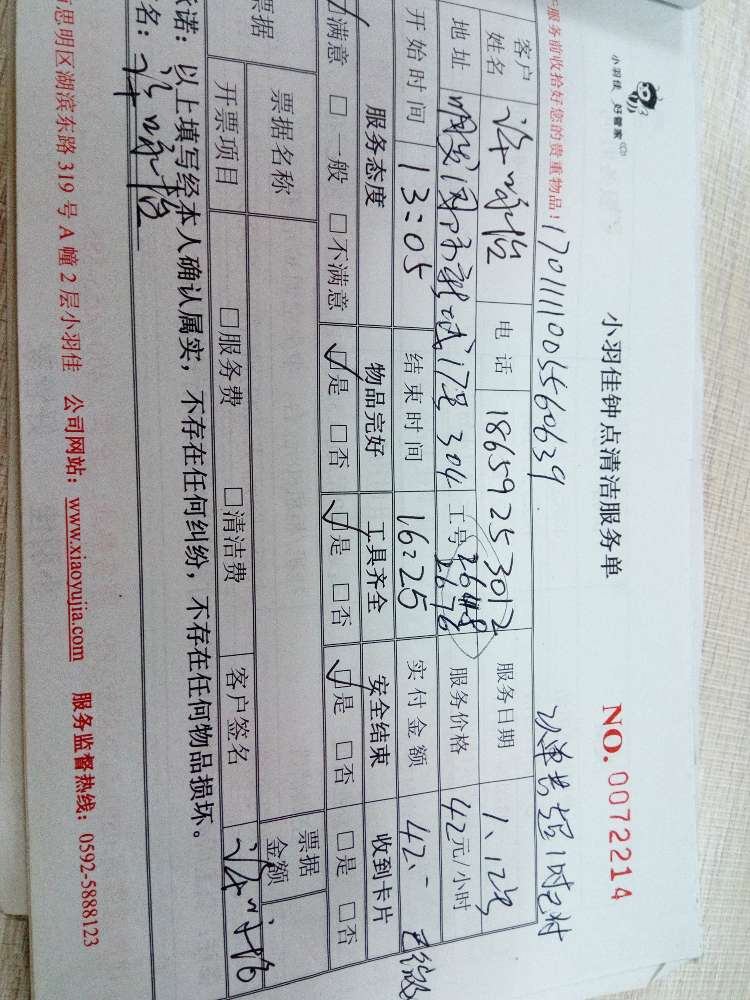 小羽佳 好管家
小羽佳钟点清洁服务单
NO. 0072214
服务前收拾好您的贵重物品！
17011110055560639
客户姓名
电话 18659253012
服务日期 1.12号
地址 17号304
工号 2676
服务价格 42元/小时
开始时间 13:05
结束时间 16:25
实付金额 42.-
服务态度 物品完好 工具齐全 安全结束 收到卡片
☑满意 □一般 □不满意 ☑是 □否 ☑是 □否 ☑是 □否 □是 □否
票据 票据名称 票据金额
开票项目 □服务费 □清洁费 客户签名
承诺：以上填写经本人确认属实，不存在任何纠纷，不存在任何物品损坏。
名：
思明区湖滨东路319号A幢2层小羽佳 公司网站：www.xiaoyujia.com 服务监督热线：0592-5888123